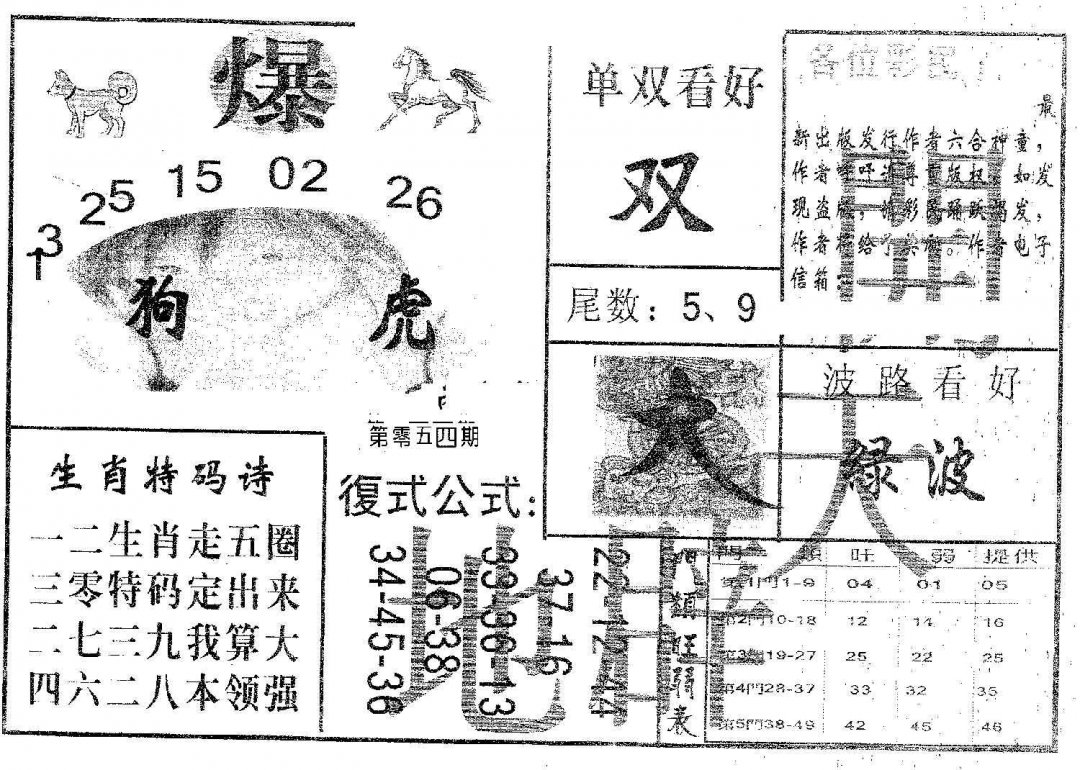 爆
25 15 02 26
3
1
狗 虎
第零五四期
生肖特码诗
一二生肖走五圈
三零特码定出来
二七三九我算大
四六二八本领强
復式公式:
34-45-36
06-38
33-36-13
37-16
22-12-44
单双看好
双
尾数:5、9
大
各位彩民
最
新出版发行作者六合神童,
作者呼吁 尊重版权。如发
现盗版, 彩民踊跃揭发,
作者 给予 。作者电子
信箱:
波路看好
绿波
門類旺弱表
門 類 旺 弱 提供
第1門1-9 04 01 05
第2門10-18 12 14 16
第3門19-27 25 22 25
第4門28-37 33 32 35
第5門38-49 42 45 46